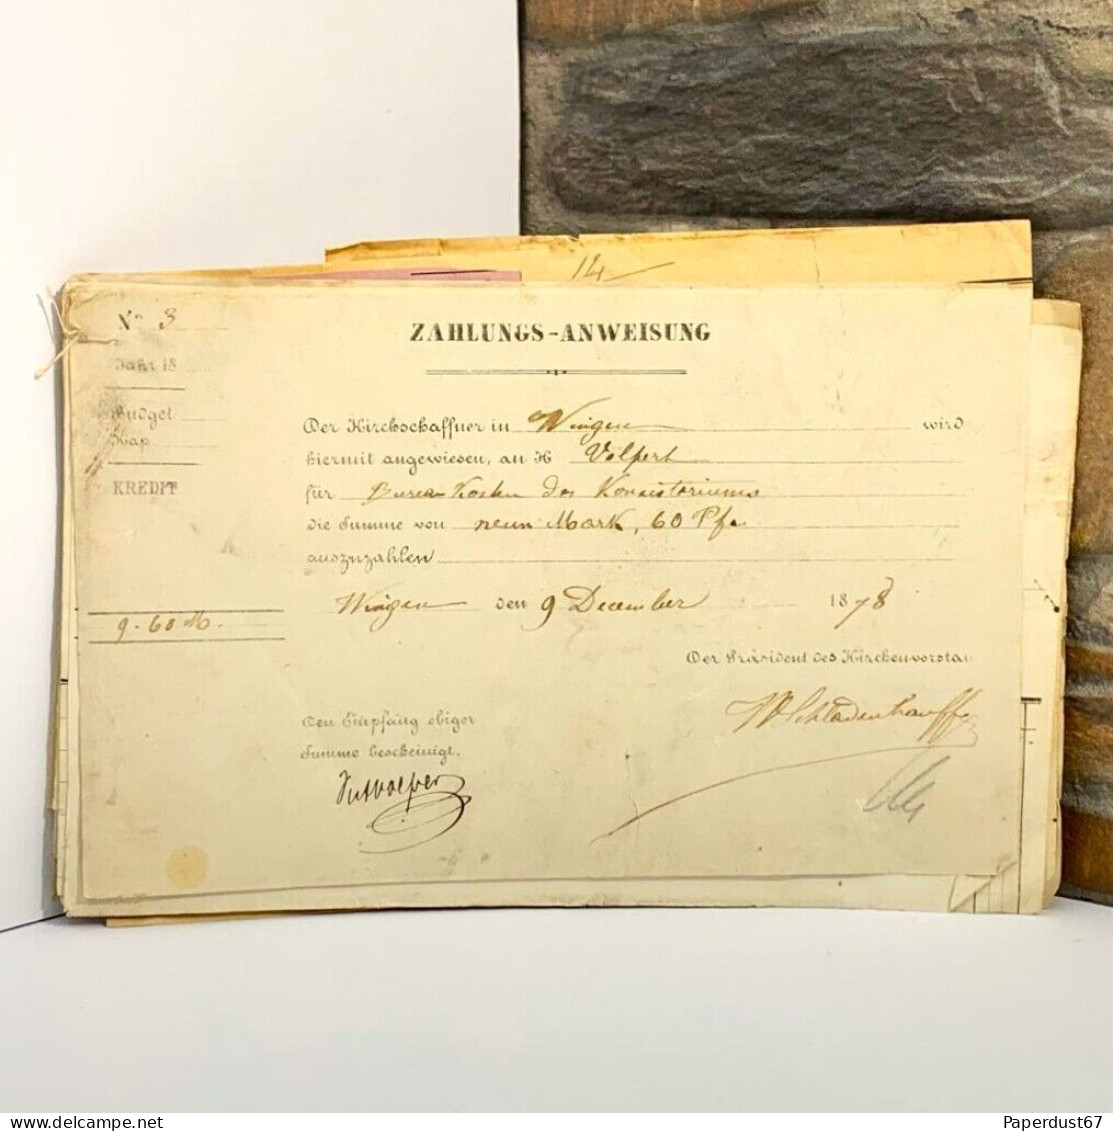 14
No 3
ZAHLUNGS-ANWEISUNG
Jahr 18
Budget
Kap
KREDIT
Der Kirchschaffner in Wingen wird
hiermit angewiesen, an H Volpert
für Bureau Kosten des Konsistoriums
die Summe von neun Mark, 60 Pf.
auszuzahlen
Wingen den 9 December 1878
9.60 M.
Der Präsident des Kirchenvorstan
Den Empfang obiger
Summe bescheinigt.
Paperdust67